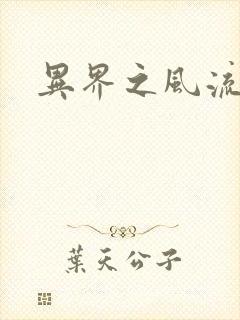 異界之風流
葉天公子